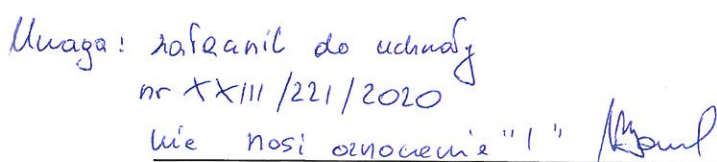 Uwaga: załącznik do uchwały
nr XXIII/221/2020
nie nosi oznaczenie "1"